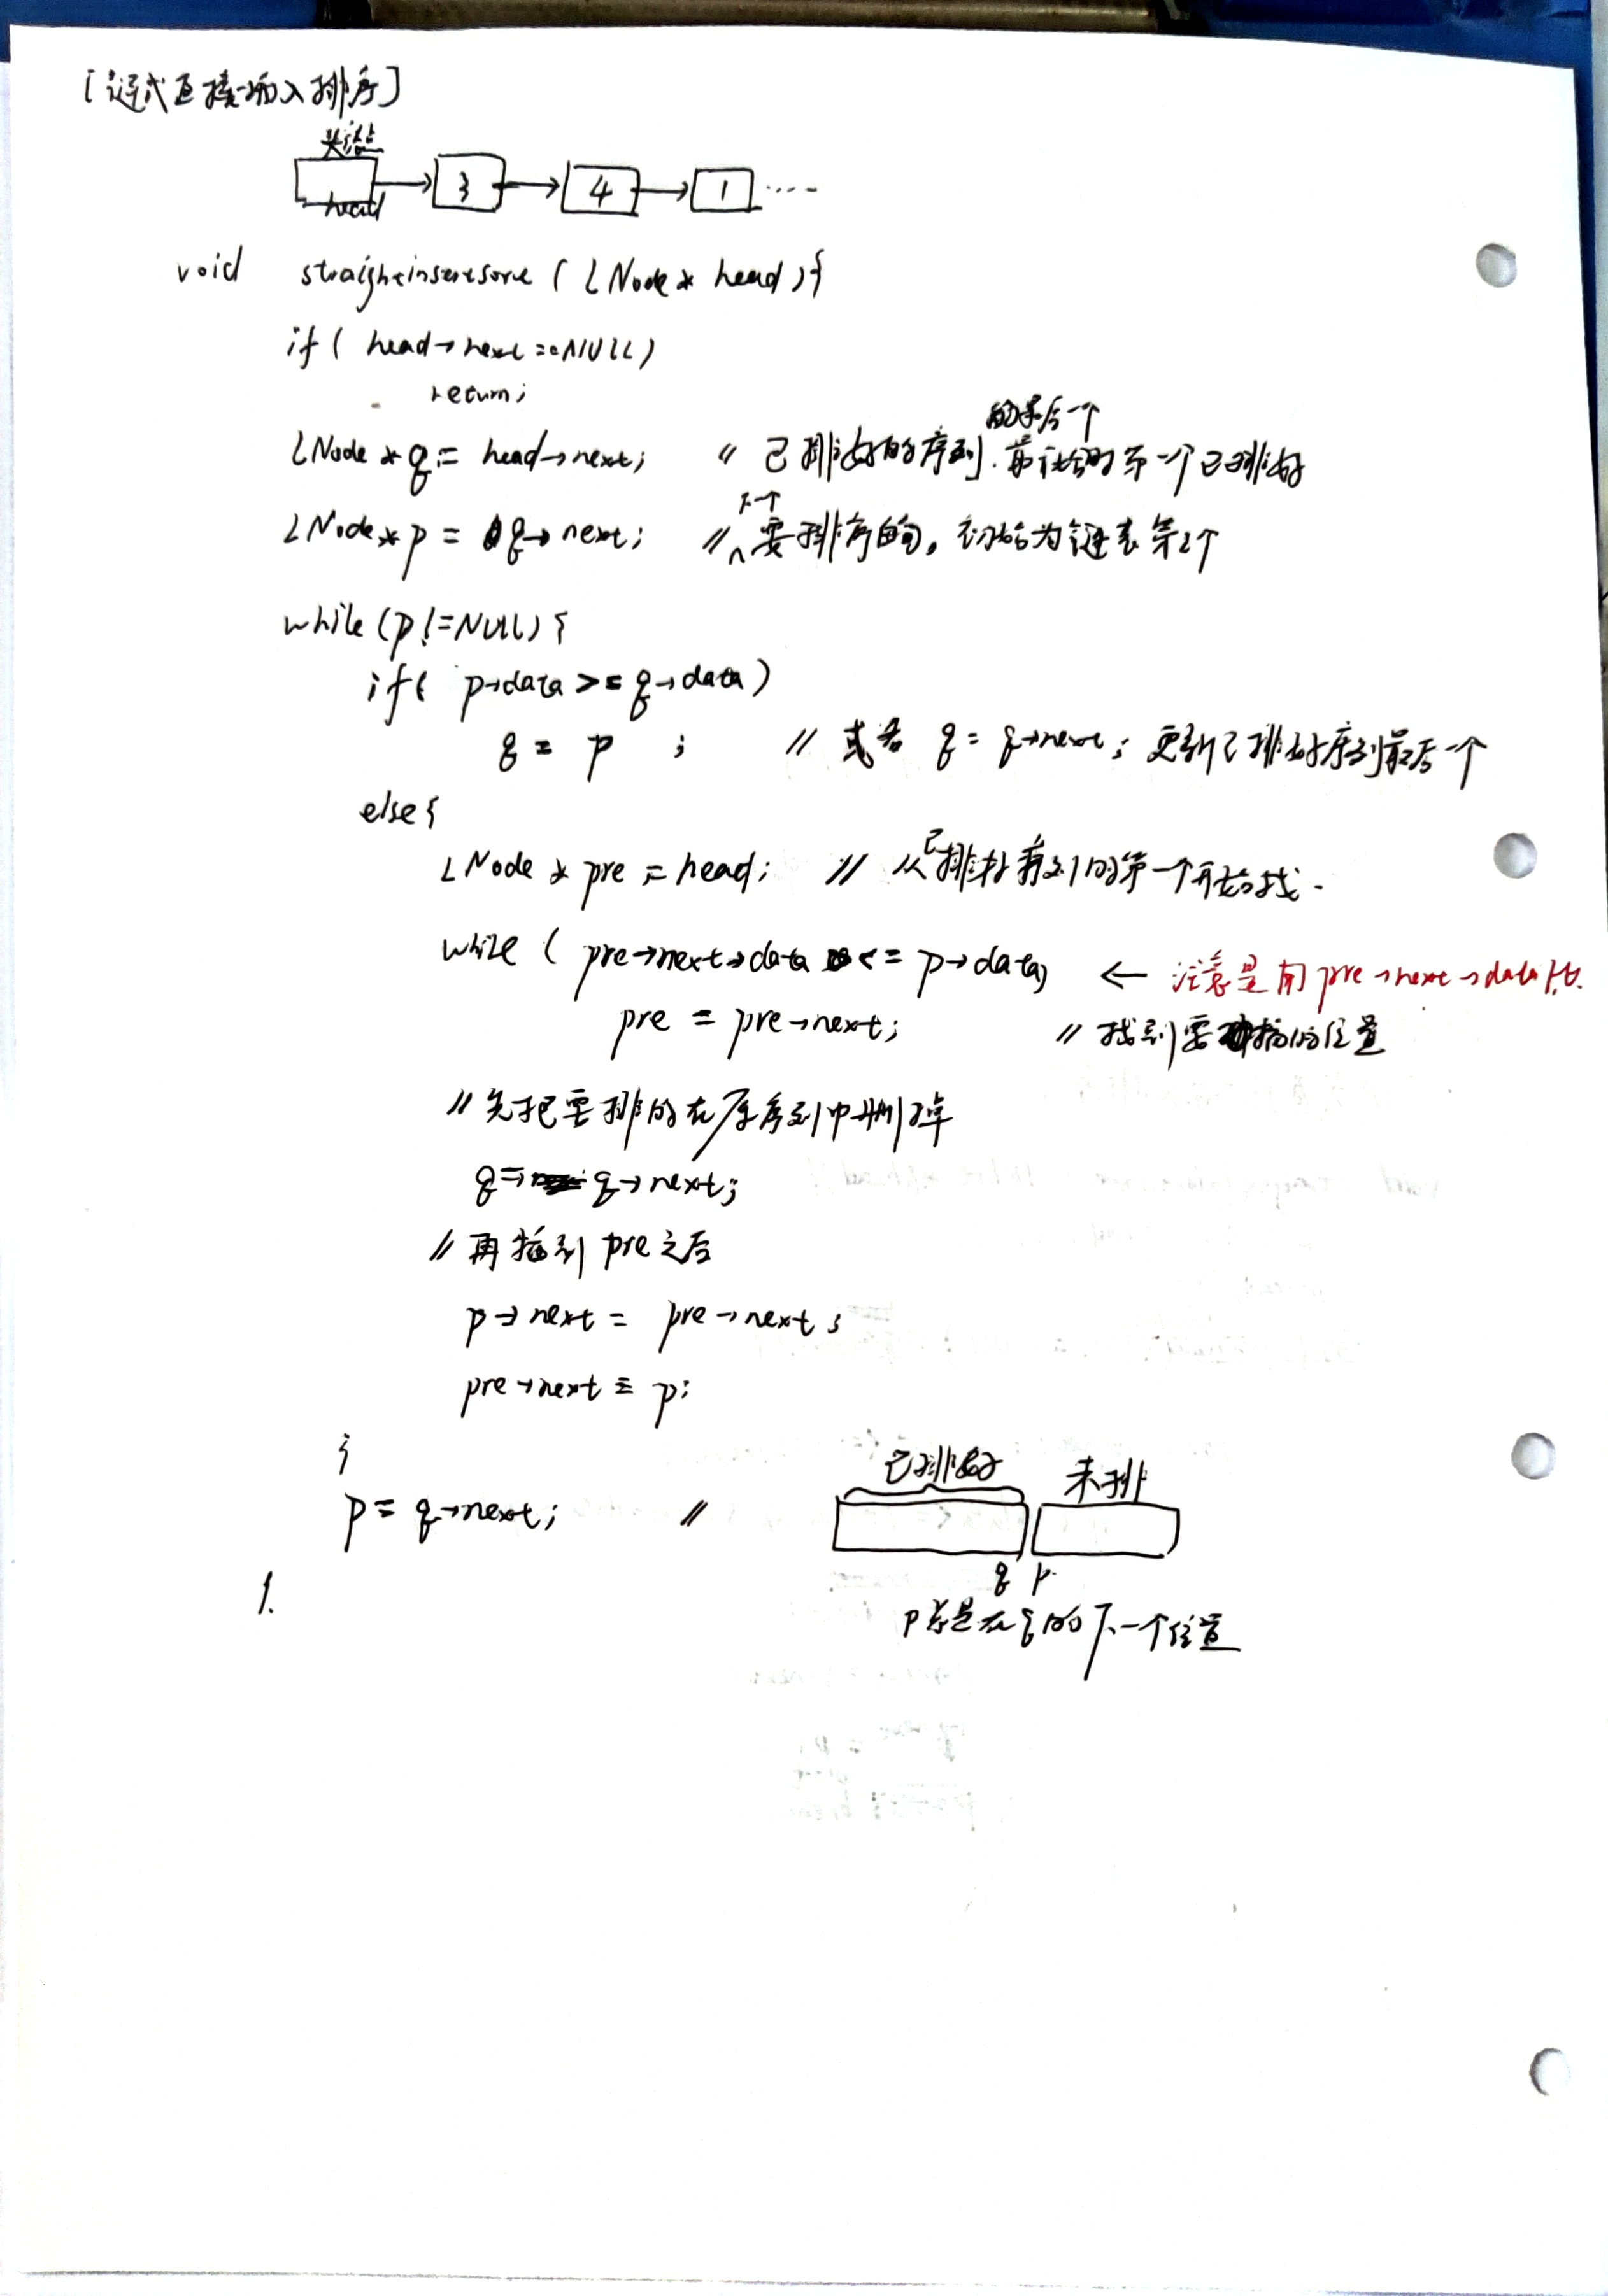 [链式直接插入排序]
头结点
head 3 4 1 ....
void straightinsertsort ( LNode * head ){
if ( head→next == NULL)
return;
的最后一个
LNode * q = head→next; // 已排好的序列. 最初始时第一个已排好
下一个
LNode * p = q→next; // ∧要排序的。初始为链表第2个
while (p != NULL) {
if ( p→data >= q→data )
q = p ; // 或者 q = q→next; 更新已排好序列最后一个
else {
LNode * pre = head; // 从已排好序列的第一个开始找.
while ( pre→next→data <= p→data) ← 注意是用 pre→next→data 比.
pre = pre→next; // 找到要插的位置
// 先把要排的在原序列中删掉
q→next;
// 再插到 pre 之后
p→next = pre→next ;
pre→next = p;
}
已排好 未排
p = q→next; //
q p.
}.
p总是在q的下一个位置